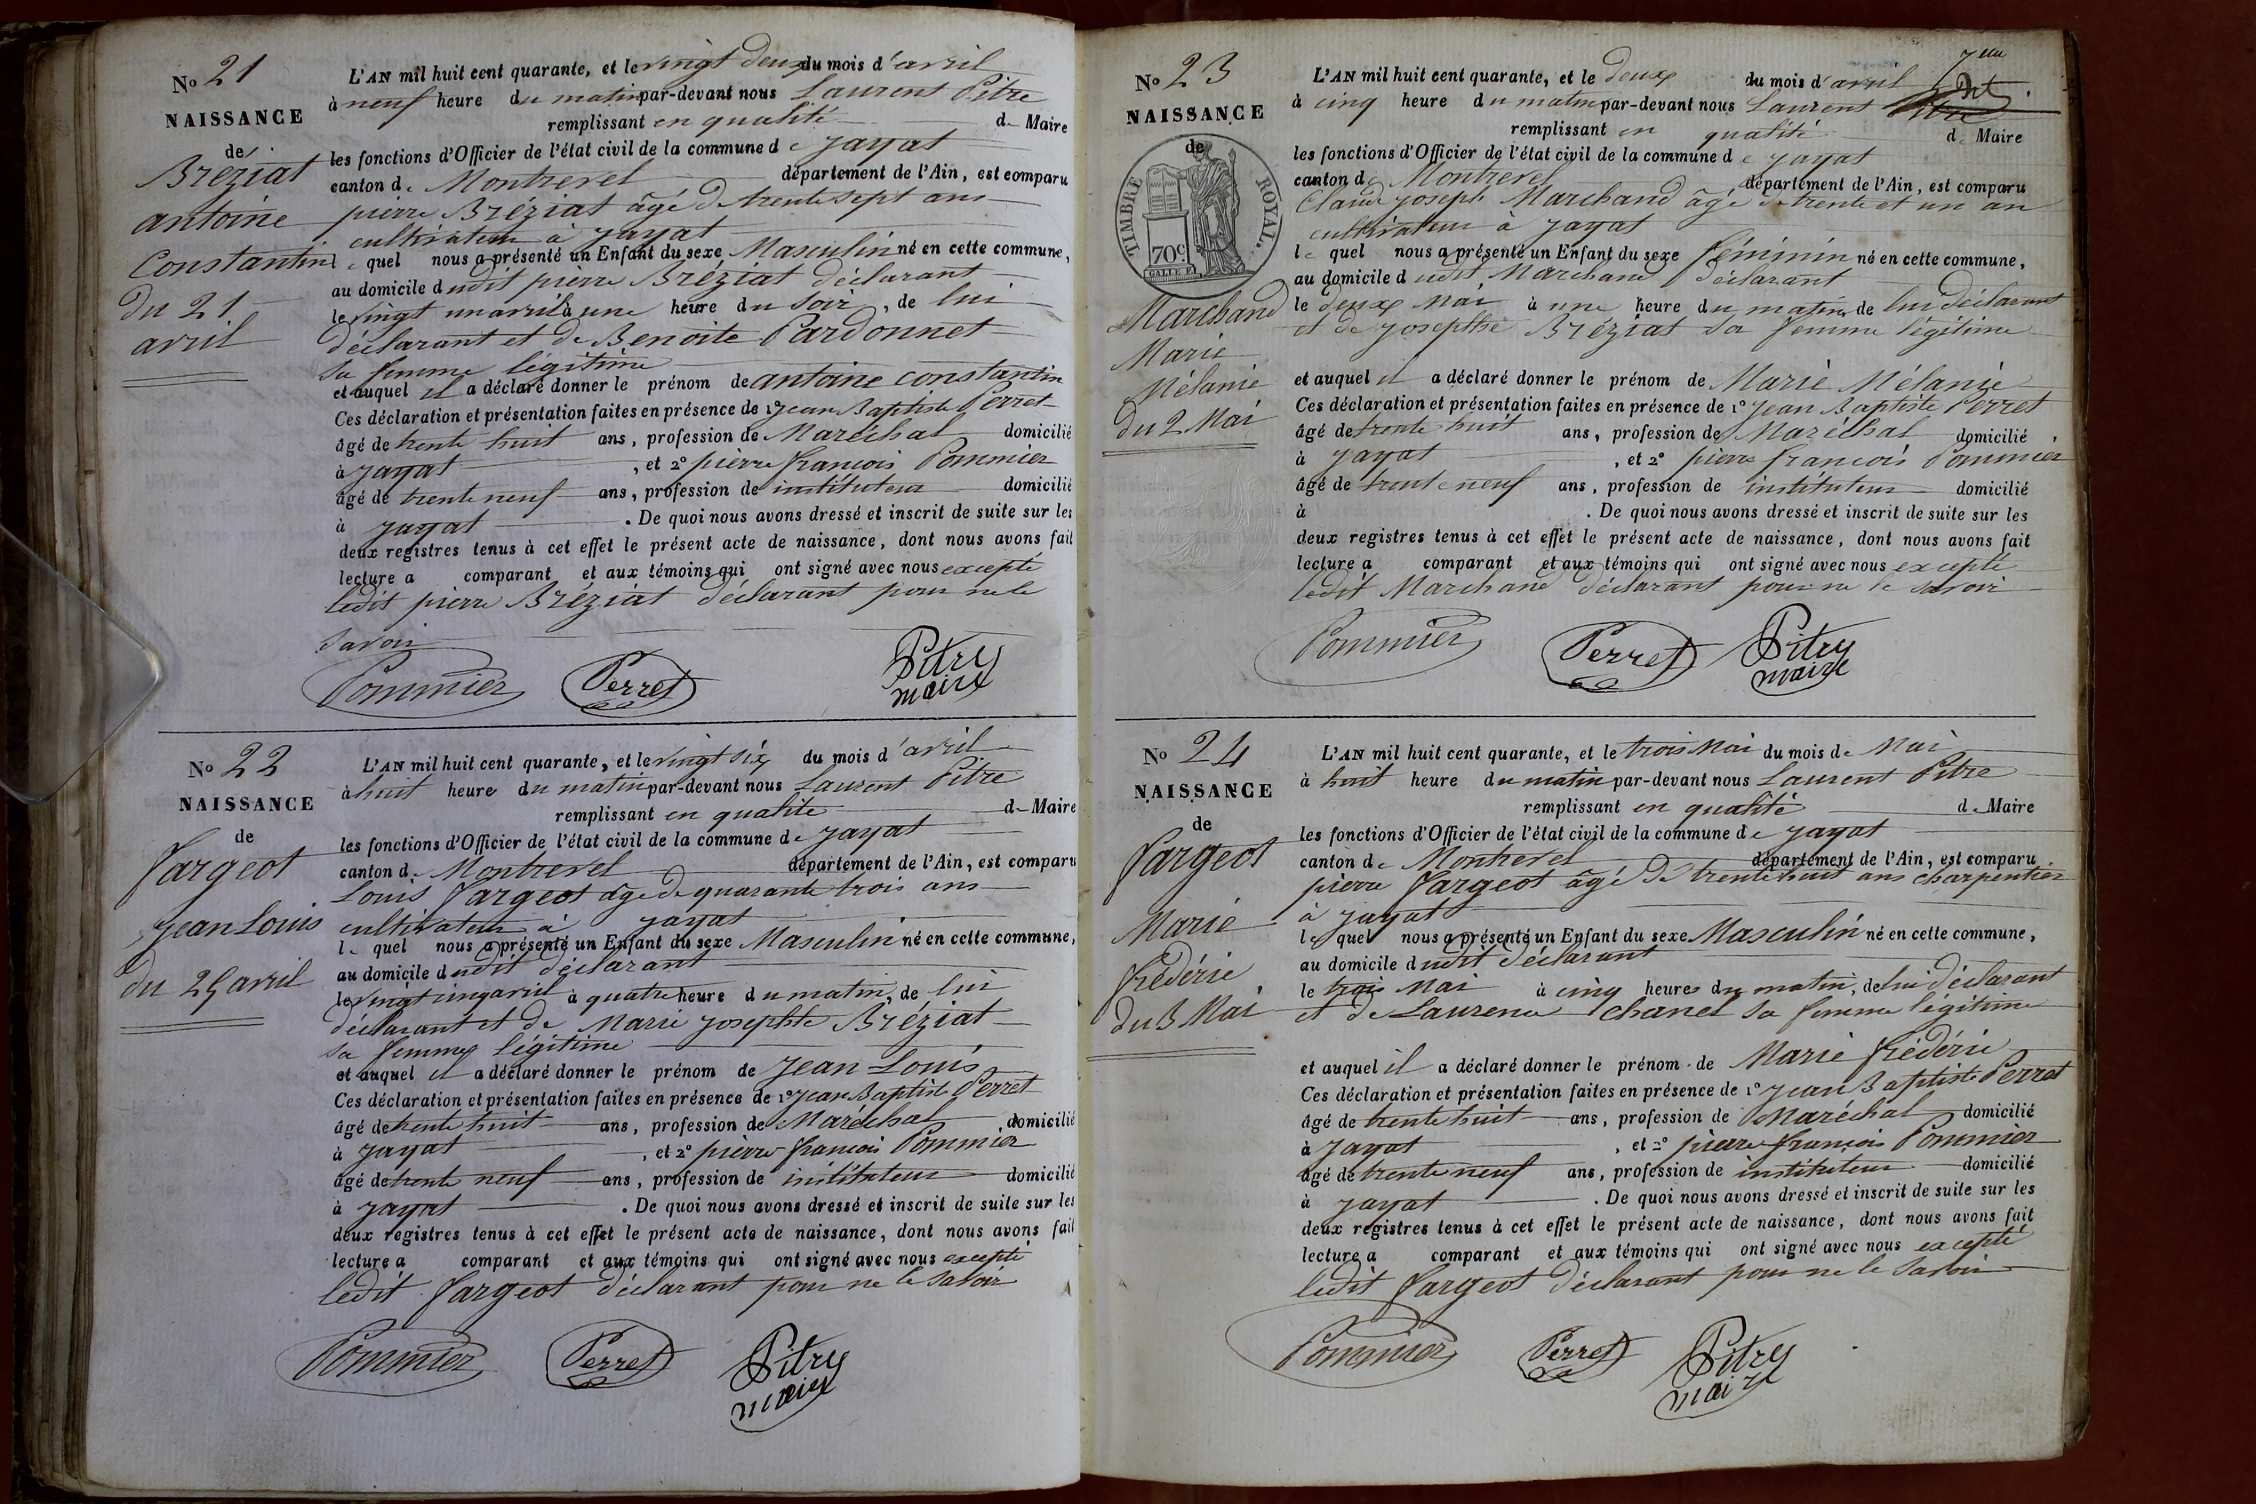 No 21
NAISSANCE
de
Bréziat
antoine
Constantin
du 21
avril
L'AN mil huit cent quarante, et le vingt deux du mois d'avril
à neuf heure du matin par-devant nous Laurent Pitre
remplissant en qualité de Maire
les fonctions d'Officier de l'état civil de la commune de jayat
canton de Montrevel département de l'Ain, est comparu
pierre Bréziat âgé de trente sept ans
cultivateur à jayat
le quel nous a présenté un Enfant du sexe Masculin né en cette commune,
au domicile dudit pierre Bréziat déclarant
le vingt un avril à une heure du soir, de lui
déclarant et de Benoite Pardonnet
sa femme légitime
et auquel il a déclaré donner le prénom de antoine constantin
Ces déclaration et présentation faites en présence de 1° jean Baptiste Perret
âgé de trente huit ans, profession de Maréchal domicilié
à jayat, et 2° pierre françois Pommier
âgé de trente neuf ans, profession de instituteur domicilié
à jayat. De quoi nous avons dressé et inscrit de suite sur les
deux registres tenus à cet effet le présent acte de naissance, dont nous avons fait
lecture a comparant et aux témoins qui ont signé avec nous excepté
ledit pierre Bréziat déclarant pour ne le
savoir
Pommier Perret Pitre
maire
No 22
NAISSANCE
de
Fargeot
jean Louis
du 25 avril
L'AN mil huit cent quarante, et le vingt six du mois d'avril
à huit heure du matin par-devant nous Laurent Pitre
remplissant en qualité de Maire
les fonctions d'Officier de l'état civil de la commune de jayat
canton de Montrevel département de l'Ain, est comparu
Louis Fargeot âgé de quarante trois ans
cultivateur à jayat
le quel nous a présenté un Enfant du sexe Masculin né en cette commune,
au domicile dudit déclarant
le vingt cinq avril à quatre heure du matin, de lui
déclarant et de Marie josephte Bréziat
sa femme légitime
et auquel il a déclaré donner le prénom de jean Louis
Ces déclaration et présentation faites en présence de 1° jean Baptiste Perret
âgé de trente huit ans, profession de Maréchal domicilié
à jayat, et 2° pierre françois Pommier
âgé de trente neuf ans, profession de instituteur domicilié
à jayat. De quoi nous avons dressé et inscrit de suite sur les
deux registres tenus à cet effet le présent acte de naissance, dont nous avons fait
lecture a comparant et aux témoins qui ont signé avec nous excepté
ledit Fargeot déclarant pour ne le savoir
Pommier Perret Pitre
maire
No 23
NAISSANCE
de
TIMBRE ROYAL.
70c
Marchand
Marie
Mélanie
du 2 Mai
L'AN mil huit cent quarante, et le deux du mois d'avril
à cinq heure du matin par-devant nous Laurent Pitre
remplissant en qualité de Maire
les fonctions d'Officier de l'état civil de la commune de jayat
canton de Montrevel département de l'Ain, est comparu
Claude joseph Marchand âgé de trente et un an
cultivateur à jayat
le quel nous a présenté un Enfant du sexe féminin né en cette commune,
au domicile dudit Marchand déclarant
le deux Mai à une heure du matin, de lui déclarant
et de josephte Bréziat sa femme légitime
et auquel il a déclaré donner le prénom de Marie Mélanie
Ces déclaration et présentation faites en présence de 1° jean Baptiste Perret
âgé de trente huit ans, profession de Maréchal domicilié
à jayat, et 2° pierre françois Pommier
âgé de trente neuf ans, profession de instituteur domicilié
à . De quoi nous avons dressé et inscrit de suite sur les
deux registres tenus à cet effet le présent acte de naissance, dont nous avons fait
lecture a comparant et aux témoins qui ont signé avec nous excepté
ledit Marchand déclarant pour ne le savoir
Pommier Perret Pitre
maire
No 24
NAISSANCE
de
Fargeot
Marie
frédéric
du 3 Mai
L'AN mil huit cent quarante, et le trois Mai du mois de Mai
à huit heure du matin par-devant nous Laurent Pitre
remplissant en qualité de Maire
les fonctions d'Officier de l'état civil de la commune de jayat
canton de Montrevel département de l'Ain, est comparu
pierre Fargeot âgé de trente huit ans charpentier
à jayat
le quel nous a présenté un Enfant du sexe Masculin né en cette commune,
au domicile dudit déclarant
le trois Mai à cinq heures du matin, de lui déclarant
et de Laurence Chanel sa femme légitime
et auquel il a déclaré donner le prénom de Marie frédéric
Ces déclaration et présentation faites en présence de 1° jean Baptiste Perret
âgé de trente huit ans, profession de Maréchal domicilié
à jayat, et 2° pierre françois Pommier
âgé de trente neuf ans, profession de instituteur domicilié
à jayat. De quoi nous avons dressé et inscrit de suite sur les
deux registres tenus à cet effet le présent acte de naissance, dont nous avons fait
lecture a comparant et aux témoins qui ont signé avec nous excepté
ledit Fargeot déclarant pour ne le savoir
Pommier Perret Pitre
maire